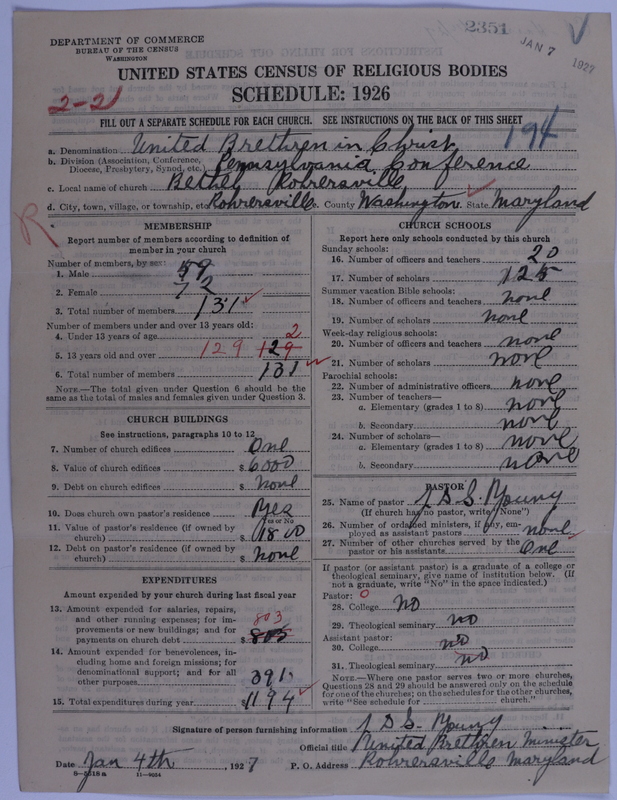 2351
JAN 7 1927
DEPARTMENT OF COMMERCE
BUREAU OF THE CENSUS
WASHINGTON
UNITED STATES CENSUS OF RELIGIOUS BODIES
SCHEDULE: 1926
2-21
FILL OUT A SEPARATE SCHEDULE FOR EACH CHURCH. SEE INSTRUCTIONS ON THE BACK OF THIS SHEET
194
a. Denomination United Brethren in Christ
b. Division (Association, Conference, Diocese, Presbytery, Synod, etc.) Pennsylvania Conference
c. Local name of church Bethel Rohrersville
d. City, town, village, or township, etc. Rohrersville e. County Washington State Maryland
R
MEMBERSHIP
Report number of members according to definition of
member in your church
Number of members, by sex:
1. Male 59
2. Female 72
3. Total number of members 131
Number of members under and over 13 years old:
4. Under 13 years of age 2
5. 13 years old and over 129 129
6. Total number of members 131
NOTE.—The total given under Question 6 should be the
same as the total of males and females given under Question 3.
CHURCH BUILDINGS
See instructions, paragraphs 10 to 12
7. Number of church edifices One
8. Value of church edifices $ 6000
9. Debt on church edifices $ none
10. Does church own pastor's residence Yes
Yes or No
11. Value of pastor's residence (if owned by
church) $ 1800
12. Debt on pastor's residence (if owned by
church) $ none
EXPENDITURES
Amount expended by your church during last fiscal year
13. Amount expended for salaries, repairs,
and other running expenses; for im-
provements or new buildings; and for
payments on church debt $ 803 803
14. Amount expended for benevolences, in-
cluding home and foreign missions; for
denominational support; and for all
other purposes 391
15. Total expenditures during year $ 1194
CHURCH SCHOOLS
Report here only schools conducted by this church
Sunday schools:
16. Number of officers and teachers 20
17. Number of scholars 125
Summer vacation Bible schools:
18. Number of officers and teachers none
19. Number of scholars none
Week-day religious schools:
20. Number of officers and teachers none
21. Number of scholars none
Parochial schools:
22. Number of administrative officers none
23. Number of teachers—
a. Elementary (grades 1 to 8) none
b. Secondary none
24. Number of scholars—
a. Elementary (grades 1 to 8) none
b. Secondary none
PASTOR
25. Name of pastor I D S Young
(If church has no pastor, write "None")
26. Number of ordained ministers, if any, em-
ployed as assistant pastors none
27. Number of other churches served by the
pastor or his assistants One
If pastor (or assistant pastor) is a graduate of a college or
theological seminary, give name of institution below. (If
not a graduate, write "No" in the space indicated.)
Pastor: 0
28. College No
29. Theological seminary no
Assistant pastor:
30. College no
31. Theological seminary no
NOTE.—Where one pastor serves two or more churches,
Questions 28 and 29 should be answered only on the schedule
for one of the churches; on the schedules for the other churches,
write "See schedule for church."
Signature of person furnishing information I D S Young
Official title United Brethren Minister
Date Jan 4th, 1927 P. O. Address Rohrersville Maryland
8-5318 a 11-9034